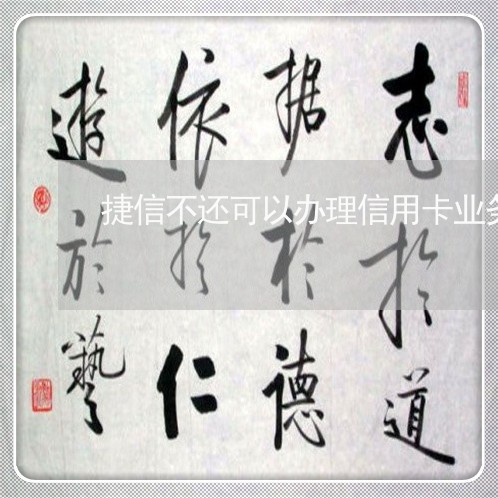 志於道
据於德
依於仁
遊於藝
捷信不还可以办理信用卡业